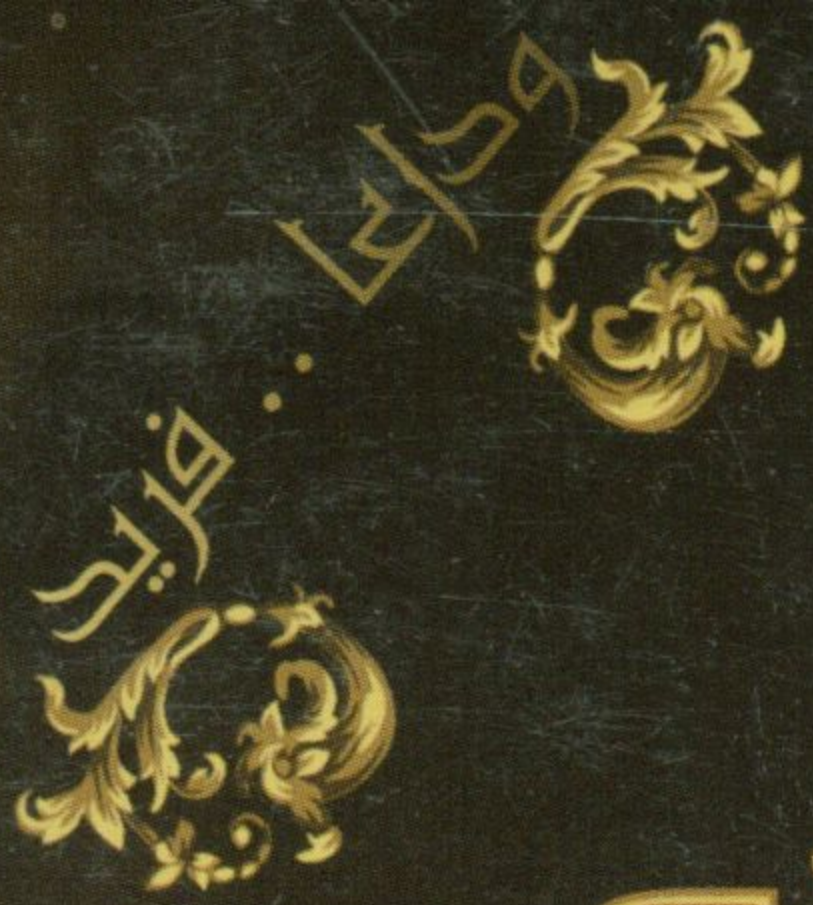 وداعا .. فريد